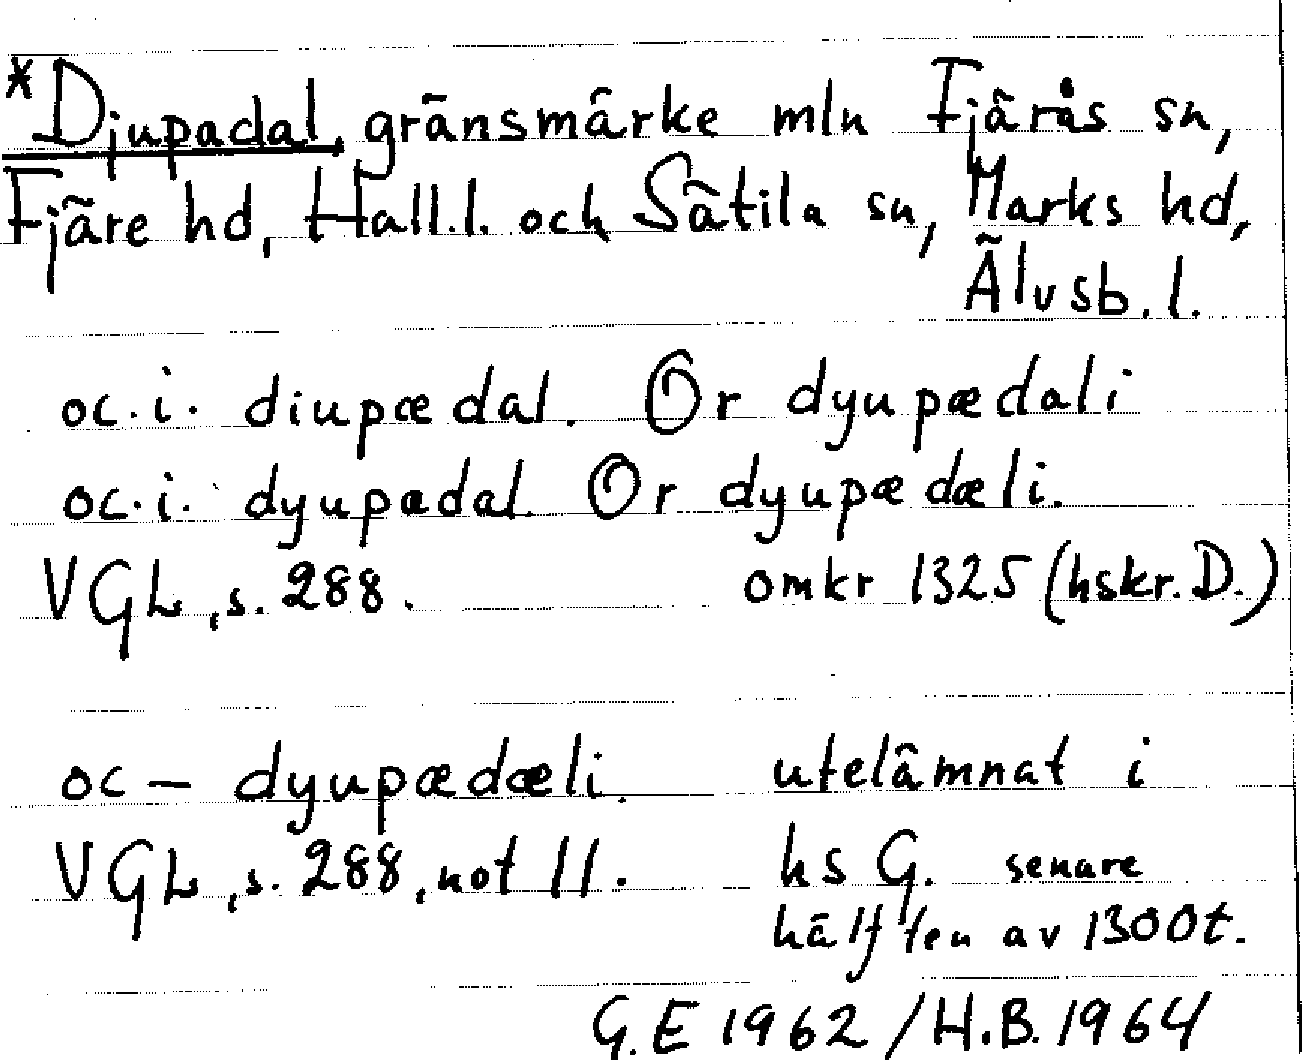 *Djupadal, gränsmärke mln Fjärås sn,
Fjäre hd, Hall.l. och Sätila sn, Marks hd,
Älvsb.l.
oc.i. diupædal. Or dyupædali
oc.i. dyupædal. Or dyupædæli.
VGL, s. 288. omkr 1325 (hskr. D.)
oc – dyupædæli. utelämnat i
VGL, s. 288, not 11. hs G. senare
hälften av 1300t.
G.E 1962 / H.B. 1964